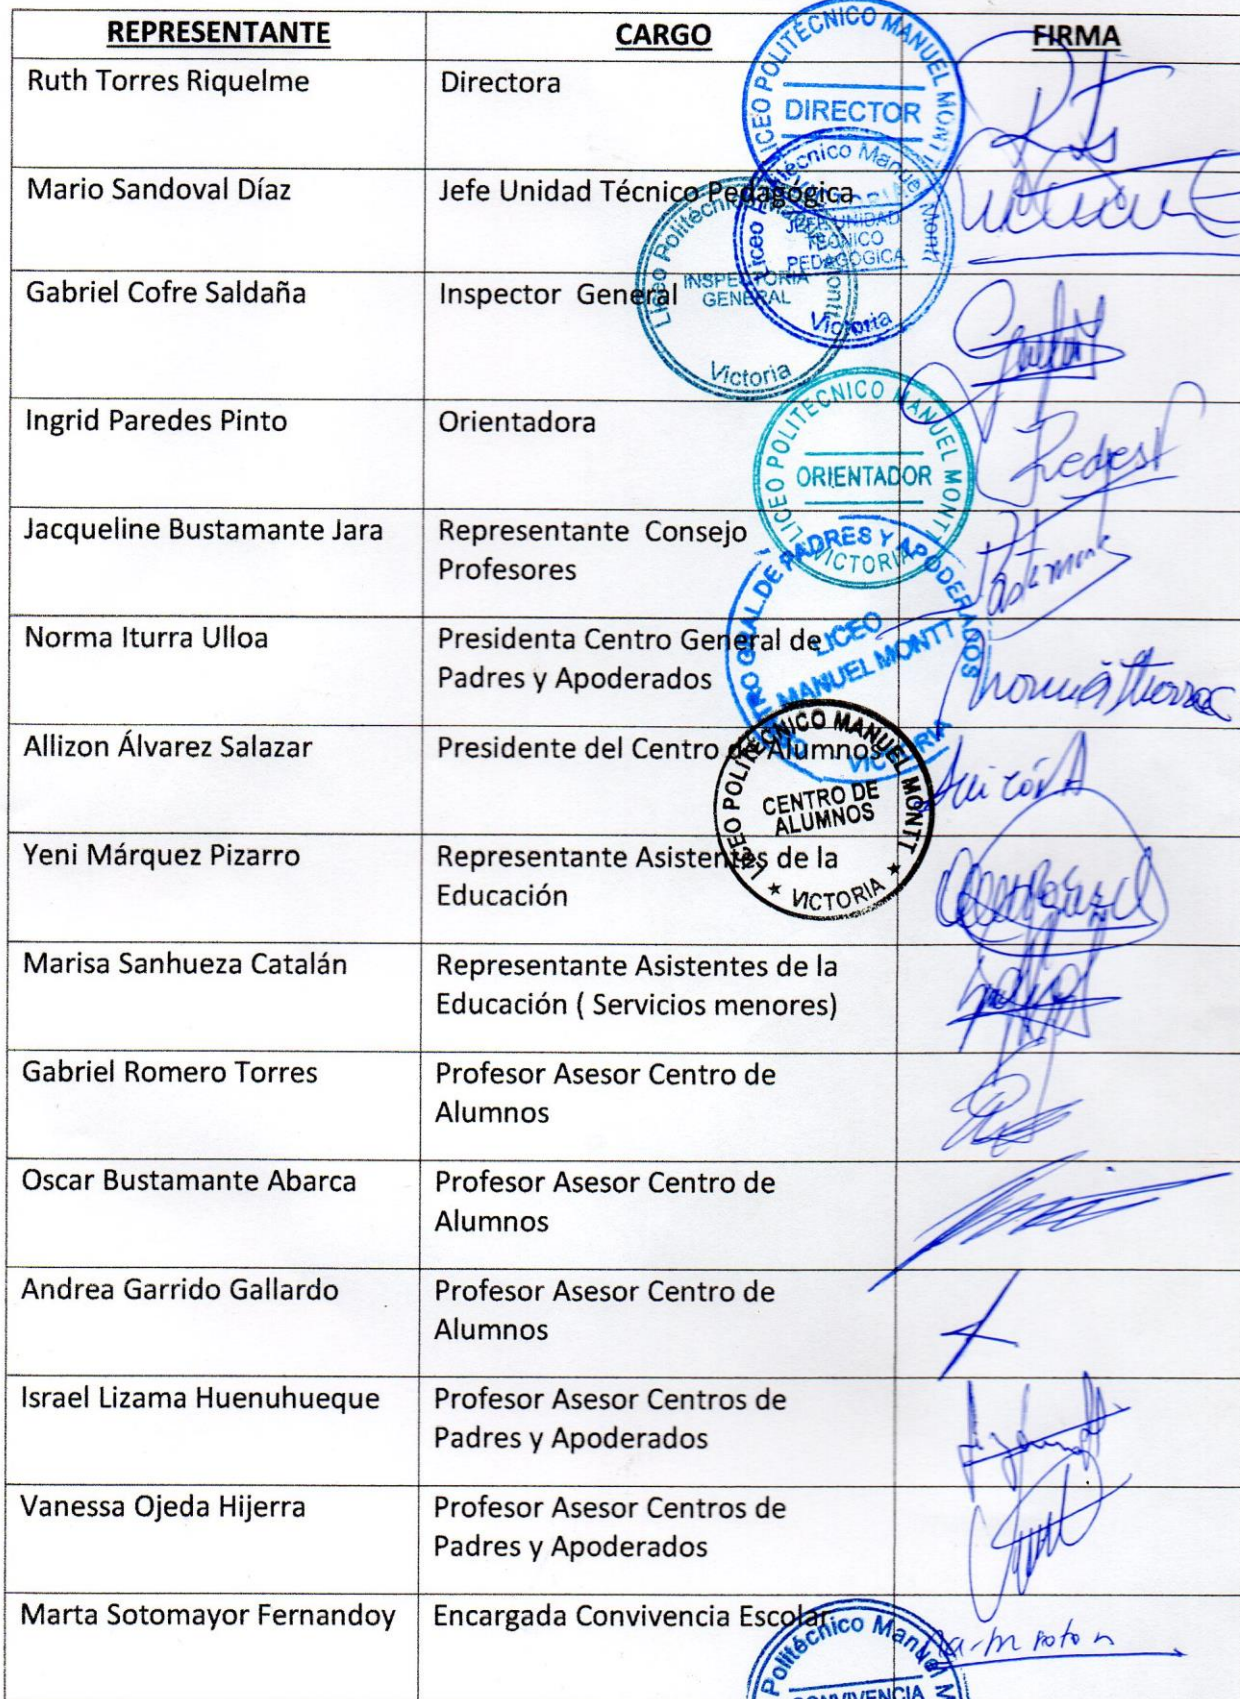 REPRESENTANTE CARGO FIRMA
Ruth Torres Riquelme Directora
LICEO POLITÉCNICO MANUEL MONTT
DIRECTOR
Mario Sandoval Díaz Jefe Unidad Técnico Pedagógica
Liceo Politécnico Manuel Montt
JEFE UNIDAD
TECNICO
PEDAGOGICA
Victoria
Gabriel Cofre Saldaña Inspector General
Liceo Politécnico Manuel Montt
INSPECTORIA
GENERAL
Victoria
Ingrid Paredes Pinto Orientadora
LICEO POLITECNICO MANUEL MONTT
ORIENTADOR
VICTORIA
Jacqueline Bustamante Jara Representante Consejo
Profesores
Norma Iturra Ulloa Presidenta Centro General de
Padres y Apoderados
CENTRO GRAL. DE PADRES Y APODERADOS
LICEO
MANUEL MONTT
VICTORIA
Norma Iturra
Allizon Álvarez Salazar Presidente del Centro de Alumnos
LICEO POLITECNICO MANUEL MONTT
CENTRO DE
ALUMNOS
VICTORIA
Yeni Márquez Pizarro Representante Asistentes de la
Educación
Marisa Sanhueza Catalán Representante Asistentes de la
Educación ( Servicios menores)
Gabriel Romero Torres Profesor Asesor Centro de
Alumnos
Oscar Bustamante Abarca Profesor Asesor Centro de
Alumnos
Andrea Garrido Gallardo Profesor Asesor Centro de
Alumnos
Israel Lizama Huenuhueque Profesor Asesor Centros de
Padres y Apoderados
Vanessa Ojeda Hijerra Profesor Asesor Centros de
Padres y Apoderados
Marta Sotomayor Fernandoy Encargada Convivencia Escolar
Politécnico Manuel M
CONVIVENCIA